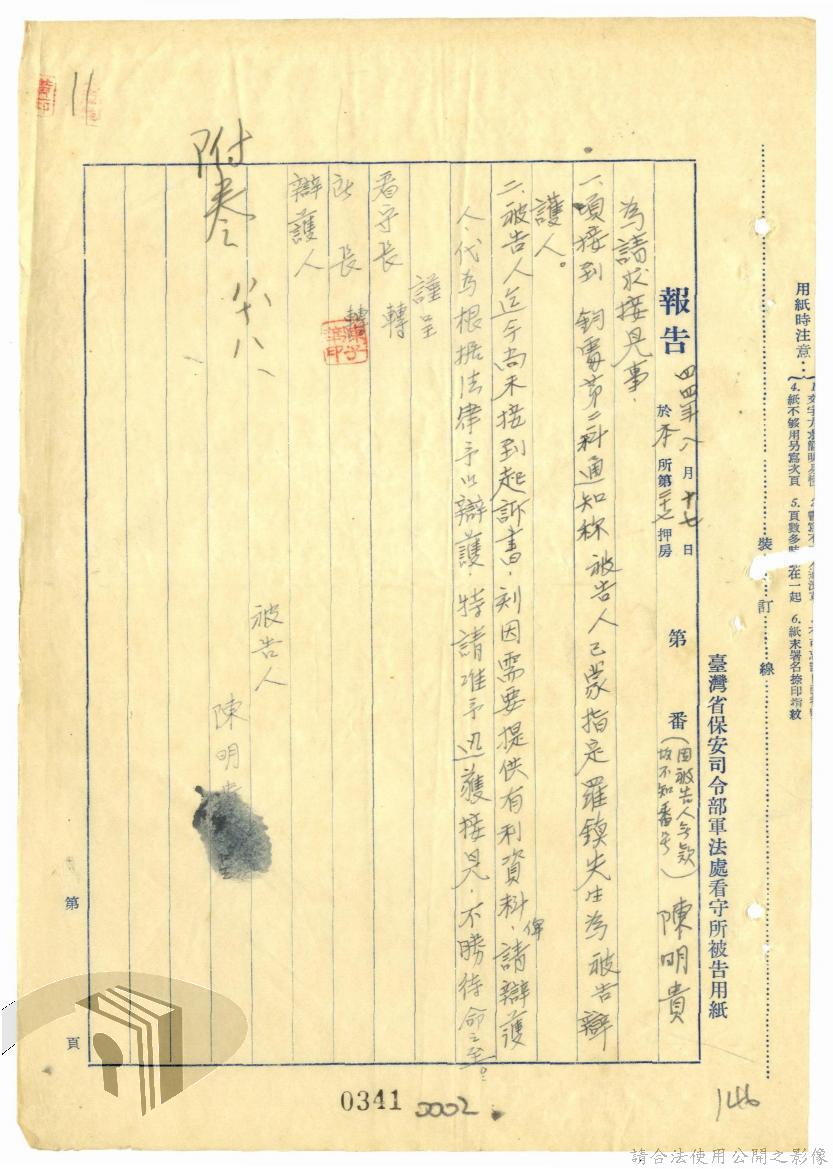 用紙時注意：
4.紙不够用另寫次頁
5.頁數多時 在一起
6.紙末署名捺印指紋
裝 訂 線
臺灣省保安司令部軍法處看守所被告用紙
報告 四四年八月十七日 於本所第三十七押房 第 番（因被告人無欵故不知番号） 陳明貴
為請求接見事．
一、頃接到 鈞處第二科通知称 被告人已蒙指定羅鎮先生為被告辯
護人。
二、被告人迄今尚未接到起訴書，刻因需要提供有利資料，俾請辯護
人，代為根据法律予以辯護，特請准予迅護接見，不勝待命之至。
謹呈
看守長 轉
所長 轉
辯護人
被告人
陳明貴 呈
附卷 八八
11
第 頁
0341
0002
146
請合法使用公開之影像